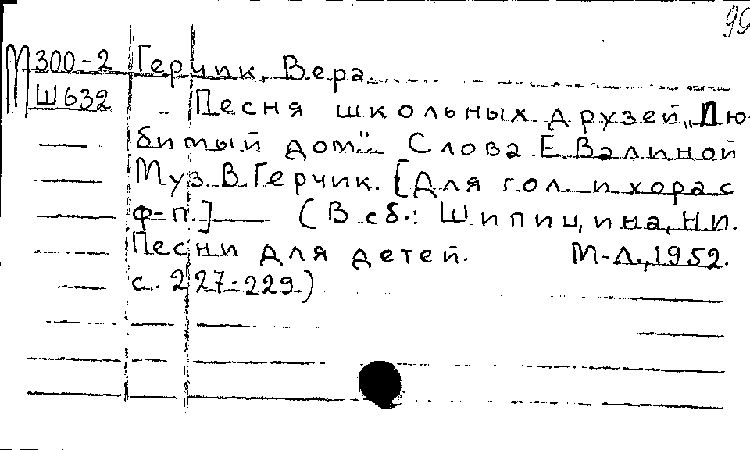 99
М300-2 Герчик, Вера.
Ш632
Песня школьных друзей „Лю-
битый дом". Слова Е.Валиной
Муз. В.Герчик. [Для гол. и хора с
ф-п.] (В сб.: Шипищина, Н.И.
Песни для детей. М-Л., 1952.
с. 227-229.)